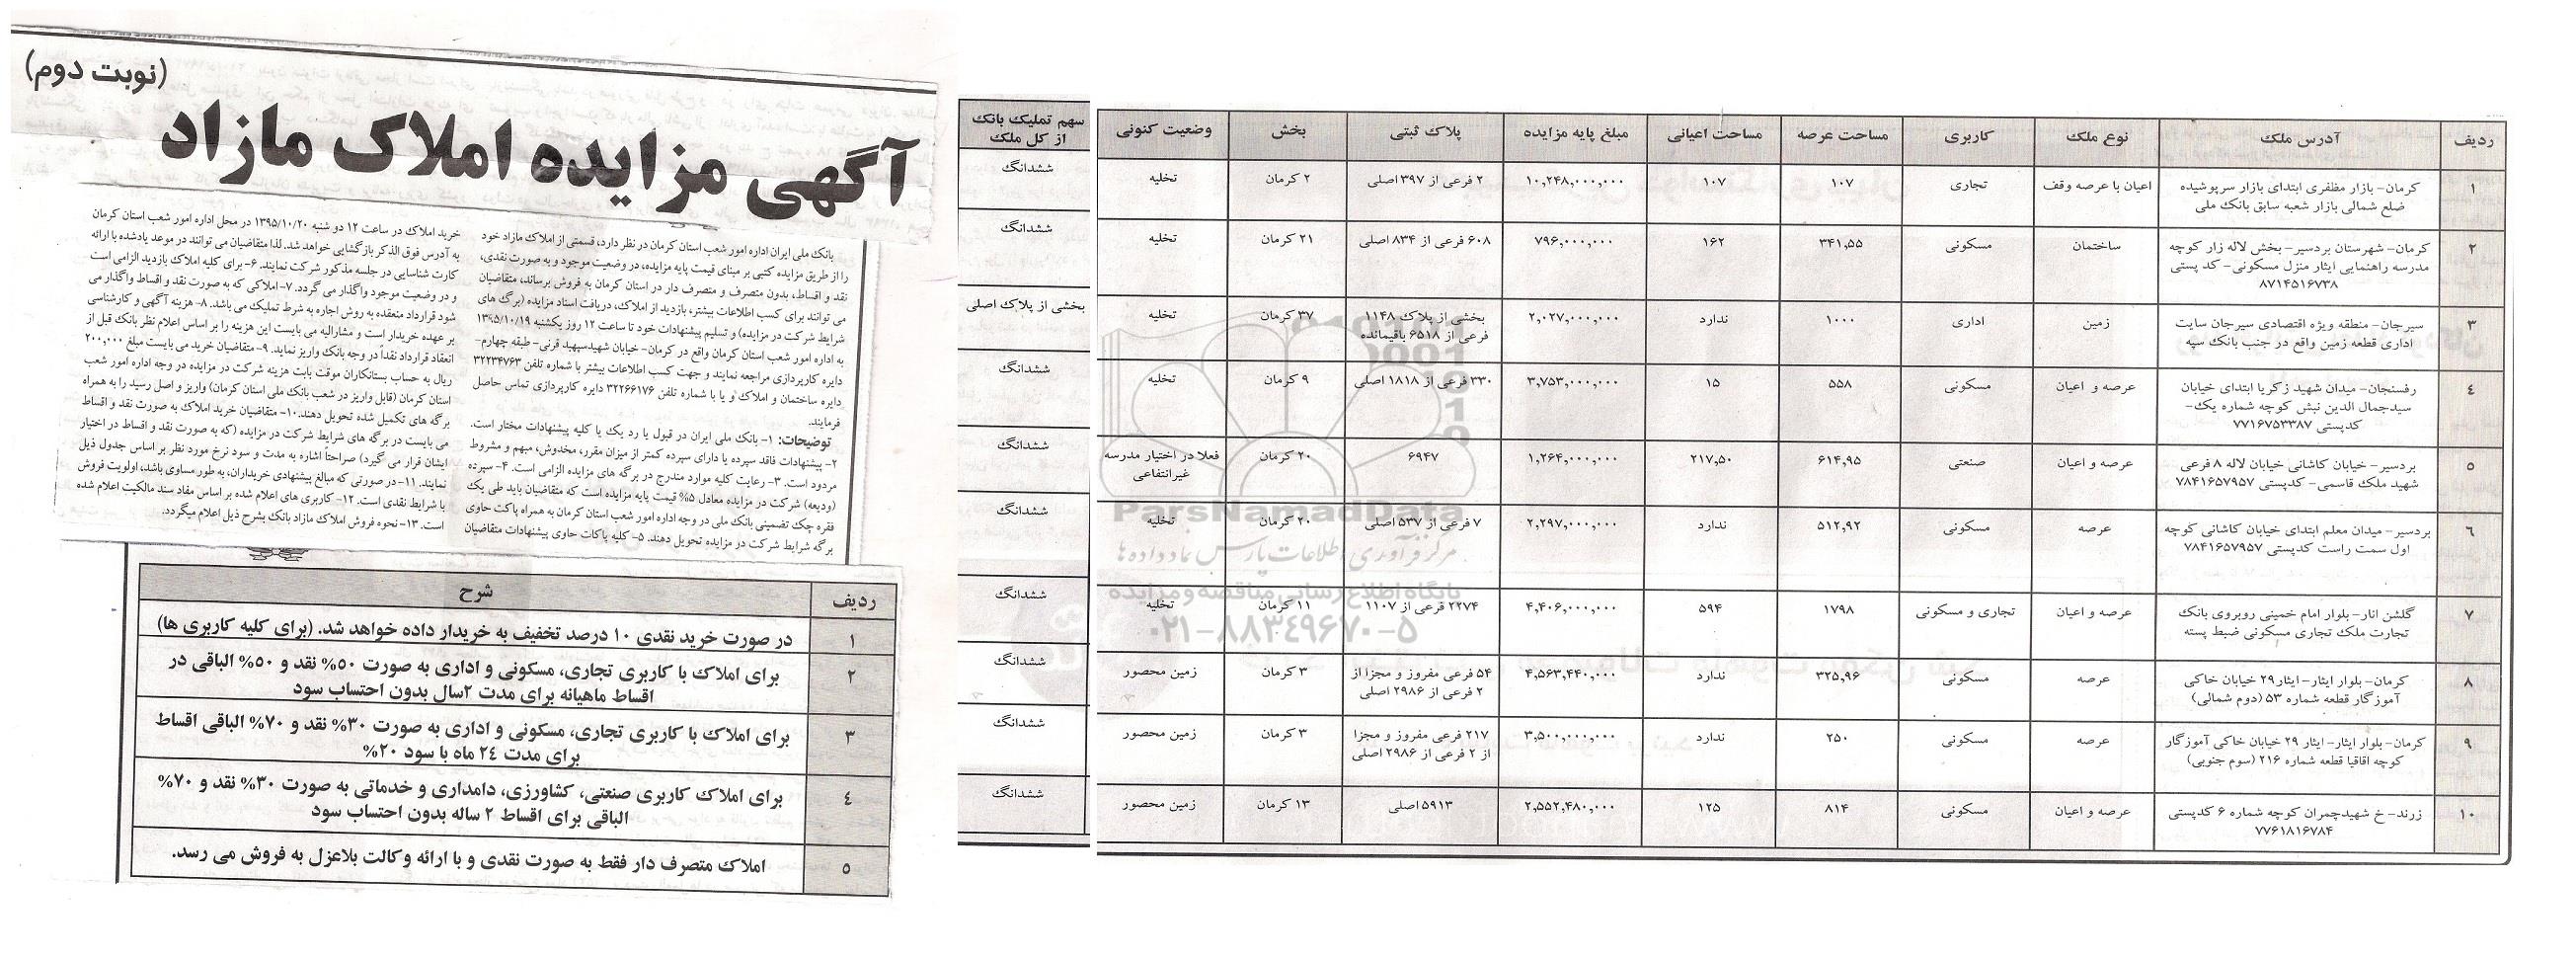 (نوبت دوم)
آگهی مزایده املاک مازاد
بانک ملی ایران اداره امور شعب استان کرمان در نظر دارد، قسمتی از املاک مازاد خود
را از طریق مزایده کتبی بر مبنای قیمت پایه مزایده، در وضعیت موجود و به صورت نقدی،
نقد و اقساط، بدون متصرف و متصرف دار در استان کرمان به فروش برساند، متقاضیان
می توانند برای کسب اطلاعات بیشتر، بازدید از املاک، دریافت اسناد مزایده (برگ های
شرایط شرکت در مزایده) و تسلیم پیشنهادات خود تا ساعت ۱۲ روز یکشنبه ۱۳۹۵/۱۰/۱۹
به اداره امور شعب استان کرمان واقع در کرمان- خیابان شهیدسپهبد قرنی- طبقه چهارم-
دایره کارپردازی مراجعه نمایند و جهت کسب اطلاعات بیشتر با شماره تلفن ۳۲۲۳۴۷۶۳
دایره ساختمان و املاک و یا با شماره تلفن ۳۲۲۶۶۱۷۶ دایره کارپردازی تماس حاصل
فرمایند.
توضیحات: ۱- بانک ملی ایران در قبول یا رد یک یا کلیه پیشنهادات مختار است.
۲- پیشنهادات فاقد سپرده یا دارای سپرده کمتر از میزان مقرر، مخدوش، مبهم و مشروط
مردود است. ۳- رعایت کلیه موارد مندرج در برگه های مزایده الزامی است. ۴- سپرده
(ودیعه) شرکت در مزایده معادل ۵% قیمت پایه مزایده است که متقاضیان باید طی یک
فقره چک تضمینی بانک ملی در وجه اداره امور شعب استان کرمان به همراه پاکت حاوی
برگه شرایط شرکت در مزایده تحویل دهند. ۵- کلیه پاکات حاوی پیشنهادات متقاضیان
خرید املاک در ساعت ۱۲ دو شنبه ۱۳۹۵/۱۰/۲۰ در محل اداره امور شعب استان کرمان
به آدرس فوق الذکر بازگشایی خواهد شد. لذا متقاضیان می توانند در موعد یادشده با ارائه
کارت شناسایی در جلسه مذکور شرکت نمایند. ۶- برای کلیه املاک بازدید الزامی است
و در وضعیت موجود واگذار می گردد. ۷- املاکی که به صورت نقد و اقساط واگذار می
شود قرارداد منعقده به روش اجاره به شرط تملیک می باشد. ۸- هزینه آگهی و کارشناسی
بر عهده خریدار است و مشارالیه می بایست این هزینه را بر اساس اعلام نظر بانک قبل از
انعقاد قرارداد نقداً در وجه بانک واریز نماید. ۹- متقاضیان خرید می بایست مبلغ ۲۰۰,۰۰۰
ریال به حساب بستانکاران موقت بابت هزینه شرکت در مزایده در وجه اداره امور شعب
استان کرمان (قابل واریز در شعب بانک ملی استان کرمان) واریز و اصل رسید را به همراه
برگه های تکمیل شده تحویل دهند. ۱۰- متقاضیان خرید املاک به صورت نقد و اقساط
می بایست در برگه های شرایط شرکت در مزایده (که به صورت نقد و اقساط در اختیار
ایشان قرار می گیرد) صراحتاً اشاره به مدت و سود نرخ مورد نظر بر اساس جدول ذیل
نمایند. ۱۱- در صورتی که مبالغ پیشنهادی خریداران، به طور مساوی باشد، اولویت فروش
با شرایط نقدی است. ۱۲- کاربری های اعلام شده بر اساس مفاد سند مالکیت اعلام شده
است. ۱۳- نحوه فروش املاک مازاد بانک بشرح ذیل اعلام میگردد.
ردیف شرح
۱ در صورت خرید نقدی ۱۰ درصد تخفیف به خریدار داده خواهد شد. (برای کلیه کاربری ها)
۲ برای املاک با کاربری تجاری، مسکونی و اداری به صورت ۵۰% نقد و ۵۰% الباقی در
اقساط ماهیانه برای مدت ۲سال بدون احتساب سود
۳ برای املاک با کاربری تجاری، مسکونی و اداری به صورت ۳۰% نقد و ۷۰% الباقی اقساط
برای مدت ۲۴ ماه با سود ۲۰%
۴ برای املاک کاربری صنعتی، کشاورزی، دامداری و خدماتی به صورت ۳۰% نقد و ۷۰%
الباقی برای اقساط ۲ ساله بدون احتساب سود
۵ املاک متصرف دار فقط به صورت نقدی و با ارائه وکالت بلاعزل به فروش می رسد.
ردیف آدرس ملک نوع ملک کاربری مساحت عرصه مساحت اعیانی مبلغ پایه مزایده پلاک ثبتی بخش وضعیت کنونی سهم تملیک بانک
از کل ملک
۱ کرمان- بازار مظفری ابتدای بازار سرپوشیده اعیان با عرصه وقف تجاری ۱۰۷ ۱۰۷ ۱۰,۲۴۸,۰۰۰,۰۰۰ ۲ فرعی از ۳۹۷ اصلی ۲ کرمان تخلیه ششدانگ
ضلع شمالی بازار شعبه سابق بانک ملی
۲ کرمان- شهرستان بردسیر- بخش لاله زار کوچه ساختمان مسکونی ۳۴۱,۵۵ ۱۶۲ ۷۹۶,۰۰۰,۰۰۰ ۶۰۸ فرعی از ۸۳۴ اصلی ۲۱ کرمان تخلیه ششدانگ
مدرسه راهنمایی ایثار منزل مسکونی- کد پستی
۸۷۱۴۵۱۶۷۳۸
۳ سیرجان- منطقه ویژه اقتصادی سیرجان سایت زمین اداری ۱۰۰۰ ندارد ۲,۰۲۷,۰۰۰,۰۰۰ بخشی از پلاک ۱۱۴۸ ۳۷ کرمان تخلیه بخشی از پلاک اصلی
اداری قطعه زمین واقع در جنب بانک سپه فرعی از ۶۵۱۸ باقیمانده
۴ رفسنجان- میدان شهید زکریا ابتدای خیابان عرصه و اعیان مسکونی ۵۵۸ ۱۵ ۳,۷۵۳,۰۰۰,۰۰۰ ۳۳۰ فرعی از ۱۸۱۸ اصلی ۹ کرمان تخلیه ششدانگ
سیدجمال الدین نبش کوچه شماره یک-
کدپستی ۷۷۱۶۷۵۳۳۸۷
۵ بردسیر- خیابان کاشانی خیابان لاله ۸ فرعی عرصه و اعیان صنعتی ۶۱۴,۹۵ ۲۱۷,۵۰ ۱,۲۶۴,۰۰۰,۰۰۰ ۶۹۴۷ ۲۰ کرمان فعلا در اختیار مدرسه ششدانگ
شهید ملک قاسمی- کدپستی ۷۸۴۱۶۵۷۹۵۷ غیرانتفاعی
۶ بردسیر- میدان معلم ابتدای خیابان کاشانی کوچه عرصه مسکونی ۵۱۲,۹۲ ندارد ۲,۲۹۷,۰۰۰,۰۰۰ ۷ فرعی از ۵۳۷ اصلی ۲۰ کرمان تخلیه ششدانگ
اول سمت راست کدپستی ۷۸۴۱۶۵۷۹۵۷
۷ گلشن انار- بلوار امام خمینی روبروی بانک عرصه و اعیان تجاری و مسکونی ۱۷۹۸ ۵۹۴ ۴,۴۰۶,۰۰۰,۰۰۰ ۲۲۷۴ فرعی از ۱۱۰۷ ۱۱ کرمان تخلیه ششدانگ
تجارت ملک تجاری مسکونی ضبط پسته
۸ کرمان- بلوار ایثار- ایثار۲۹ خیابان خاکی عرصه مسکونی ۳۲۵,۹۶ ندارد ۴,۵۶۳,۴۴۰,۰۰۰ ۵۴ فرعی مفروز و مجزا از ۳ کرمان زمین محصور ششدانگ
آموزگار قطعه شماره ۵۳ (دوم شمالی) ۲ فرعی از ۲۹۸۶ اصلی
۹ کرمان- بلوار ایثار- ایثار ۲۹ خیابان خاکی آموزگار عرصه مسکونی ۲۵۰ ندارد ۳,۵۰۰,۰۰۰,۰۰۰ ۲۱۷ فرعی مفروز و مجزا ۳ کرمان زمین محصور ششدانگ
کوچه اقاقیا قطعه شماره ۲۱۶ (سوم جنوبی) از ۲ فرعی از ۲۹۸۶ اصلی
۱۰ زرند- خ شهیدچمران کوچه شماره ۶ کدپستی عرصه و اعیان مسکونی ۸۱۴ ۱۲۵ ۲,۵۵۲,۴۸۰,۰۰۰ ۵۹۱۳ اصلی ۱۳ کرمان زمین محصور ششدانگ
۷۷۶۱۸۱۶۷۸۴
ParsNamadData
مرکز فرآوری اطلاعات پارس نماد داده ها
پایگاه اطلاع رسانی مناقصه و مزایده
۰۲۱-۸۸۳۴۹۶۷۰-۵